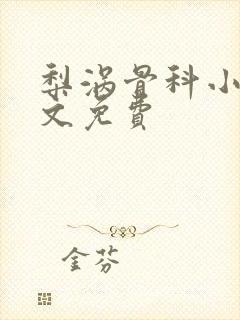 梨涡骨科小
文免費
金芬